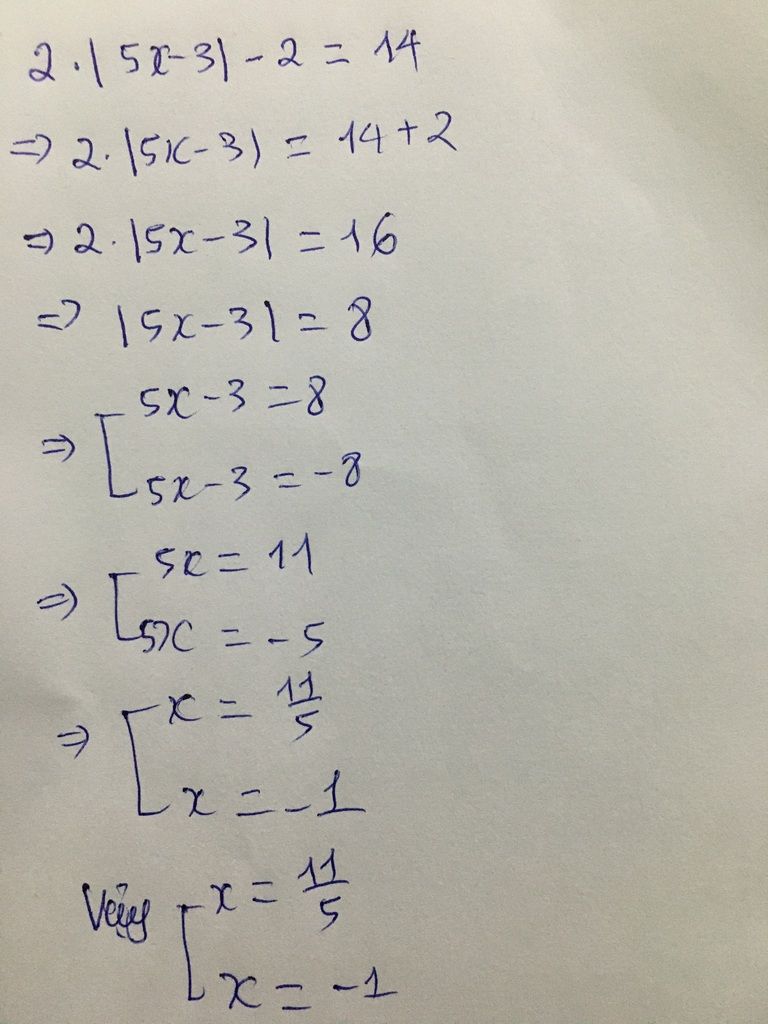 2 . | 5x - 3 | - 2 = 14
⇒ 2 . | 5x - 3 | = 14 + 2
⇒ 2 . | 5x - 3 | = 16
⇒ | 5x - 3 | = 8
5x - 3 = 8
⇒ [
5x - 3 = -8
5x = 11
⇒ [
5x = - 5
x = 11/5
⇒ [
x = - 1
Vậy [ x = 11/5
x = - 1